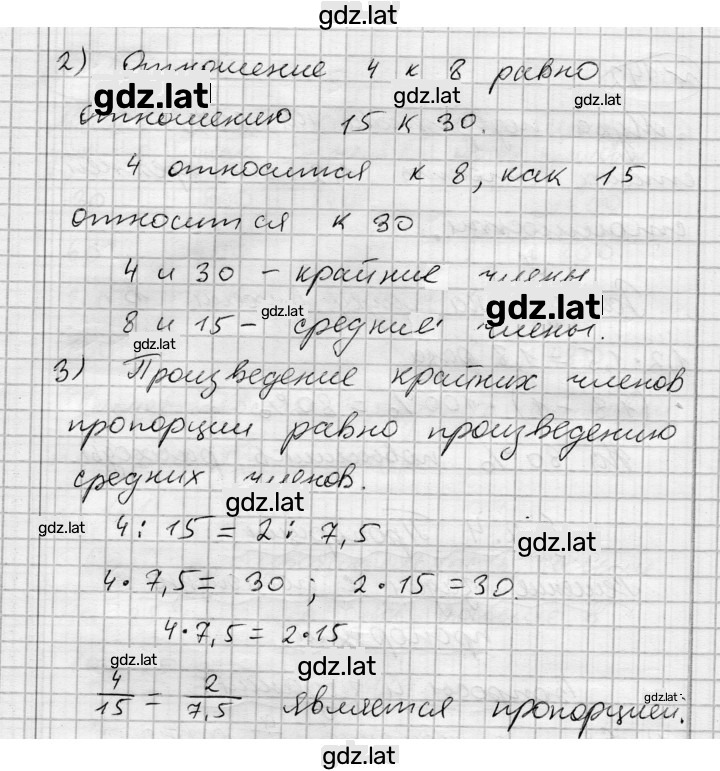 gdz.lat
2) Отношение 4 к 8 равно
gdz.lat gdz.lat gdz.lat
отношению 15 к 30.
4 относится к 8, как 15
относится к 30
4 и 30 – крайние члены
gdz.lat gdz.lat
8 и 15 – средние члены.
gdz.lat
3) Произведение крайних членов
пропорции равно произведению
средних членов.
gdz.lat
gdz.lat 4 : 15 = 2 : 7,5
gdz.lat
4 · 7,5 = 30 ; 2 · 15 = 30.
4 · 7,5 = 2 · 15
gdz.lat gdz.lat
4/15 = 2/7,5 является пропорцией.
gdz.lat
gdz.lat